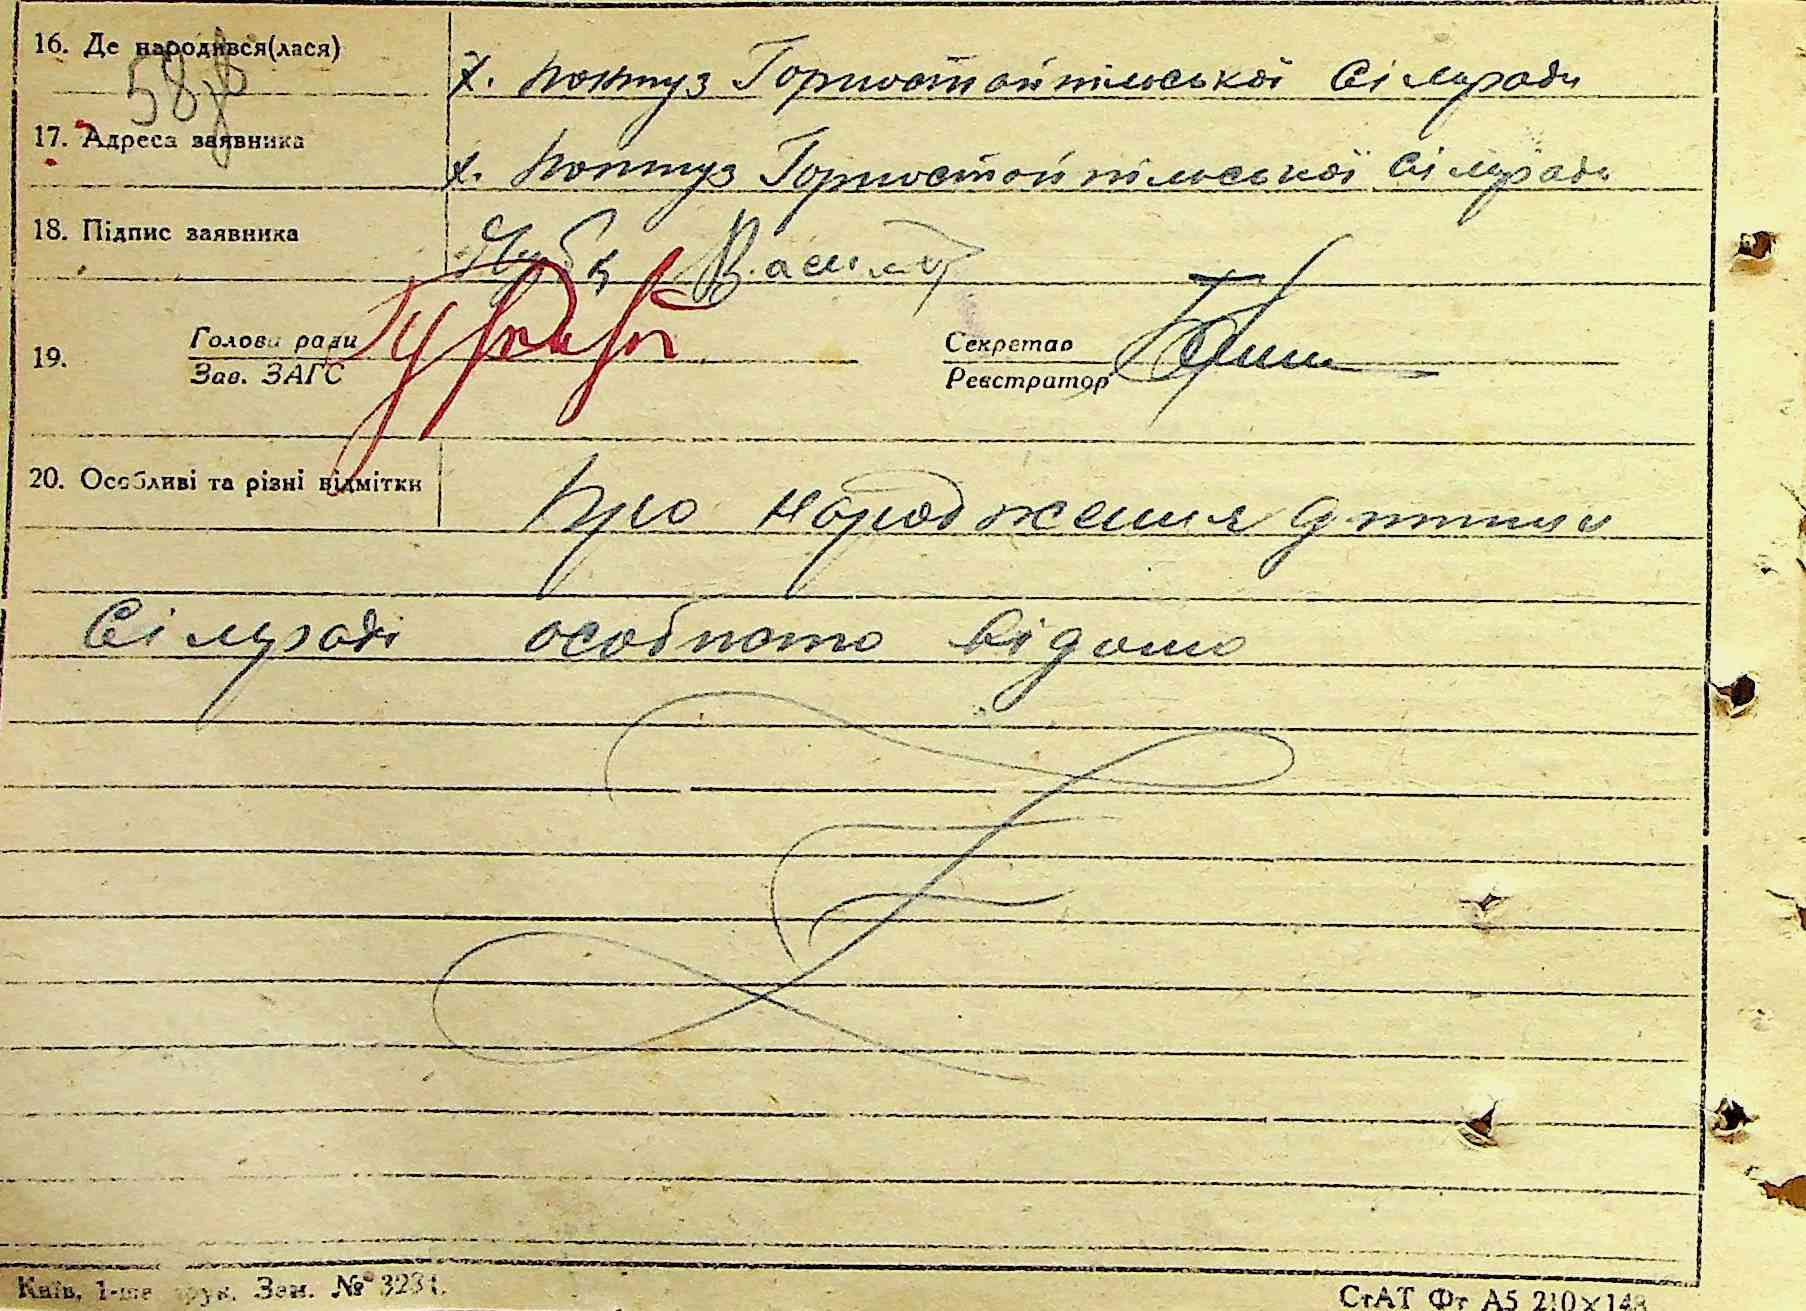 16. Де народився(лася) х. Коптуз Горностайпільської сільради
58
17. Адреса заявника х. Коптуз Горностайпільської сільради
18. Підпис заявника
19. Голова ради Секретар
Зав. ЗАГС Реєстратор
20. Особливі та різні відмітки Про народження дитини
сільраді особисто відомо
Київ, 1-ше друк. Зам. № 3231. СтАТ Фт А5 210×148